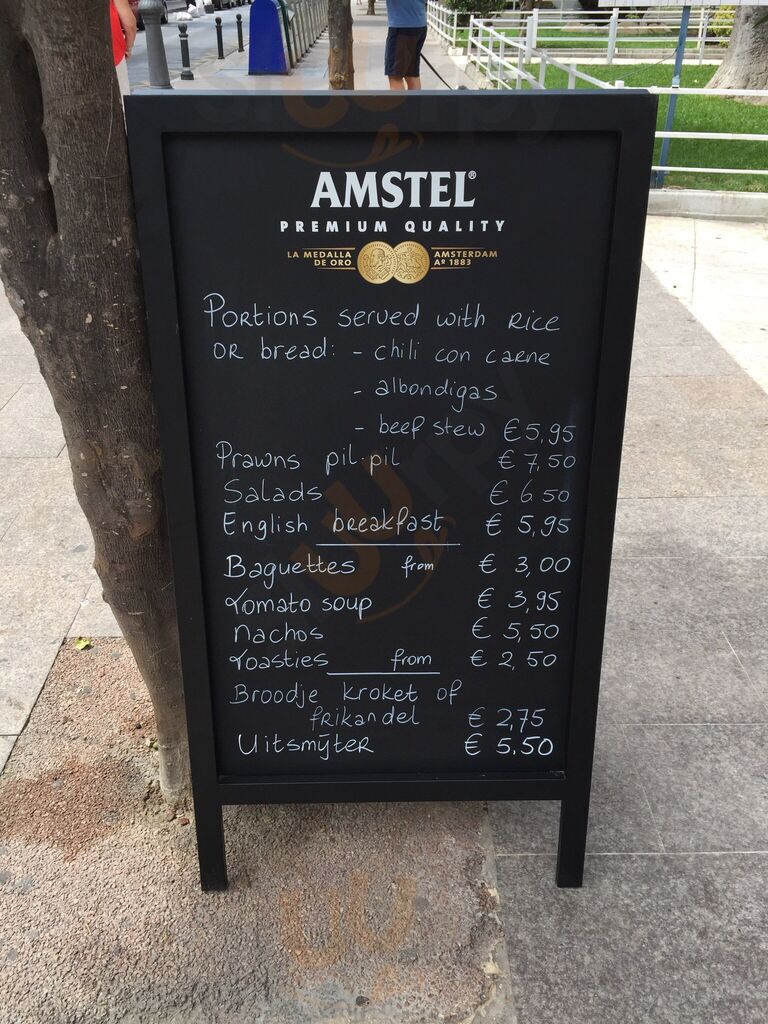 AMSTEL®
PREMIUM QUALITY
LA MEDALLA DE ORO AMSTERDAM Aº 1883
Portions served with Rice
or bread: - chili con carne
- albondigas
- beef stew €5,95
Prawns pil-pil €7,50
Salads € 6 50
English breakfast € 5,95
Baguettes from € 3,00
Tomato soup € 3,95
nachos € 5,50
Toasties from € 2,50
Broodje kroket of
frikandel € 2,75
Uitsmÿter € 5.50